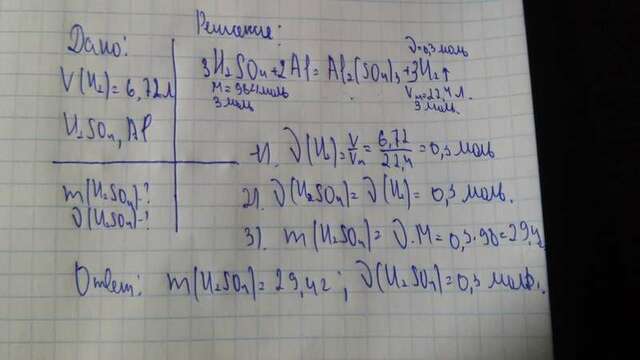 Дано:
V(H₂)=6,72л
H₂SO₄, Al
m(H₂SO₄)-?
ν(H₂SO₄)-?
Решение:
ν=0,3 моль
3H₂SO₄+2Al=Al₂(SO₄)₃+3H₂↑
3 моль
Vₘ=22,4 л.
3 моль.
1). ν(H₂)=V/Vₘ=6,72/22,4=0,3 моль
2). ν(H₂SO₄)=ν(H₂)=0,3 моль.
3). m(H₂SO₄)=ν·M=0,3·98=29,4г
Ответ: m(H₂SO₄)=29,4г; ν(H₂SO₄)=0,3 моль.